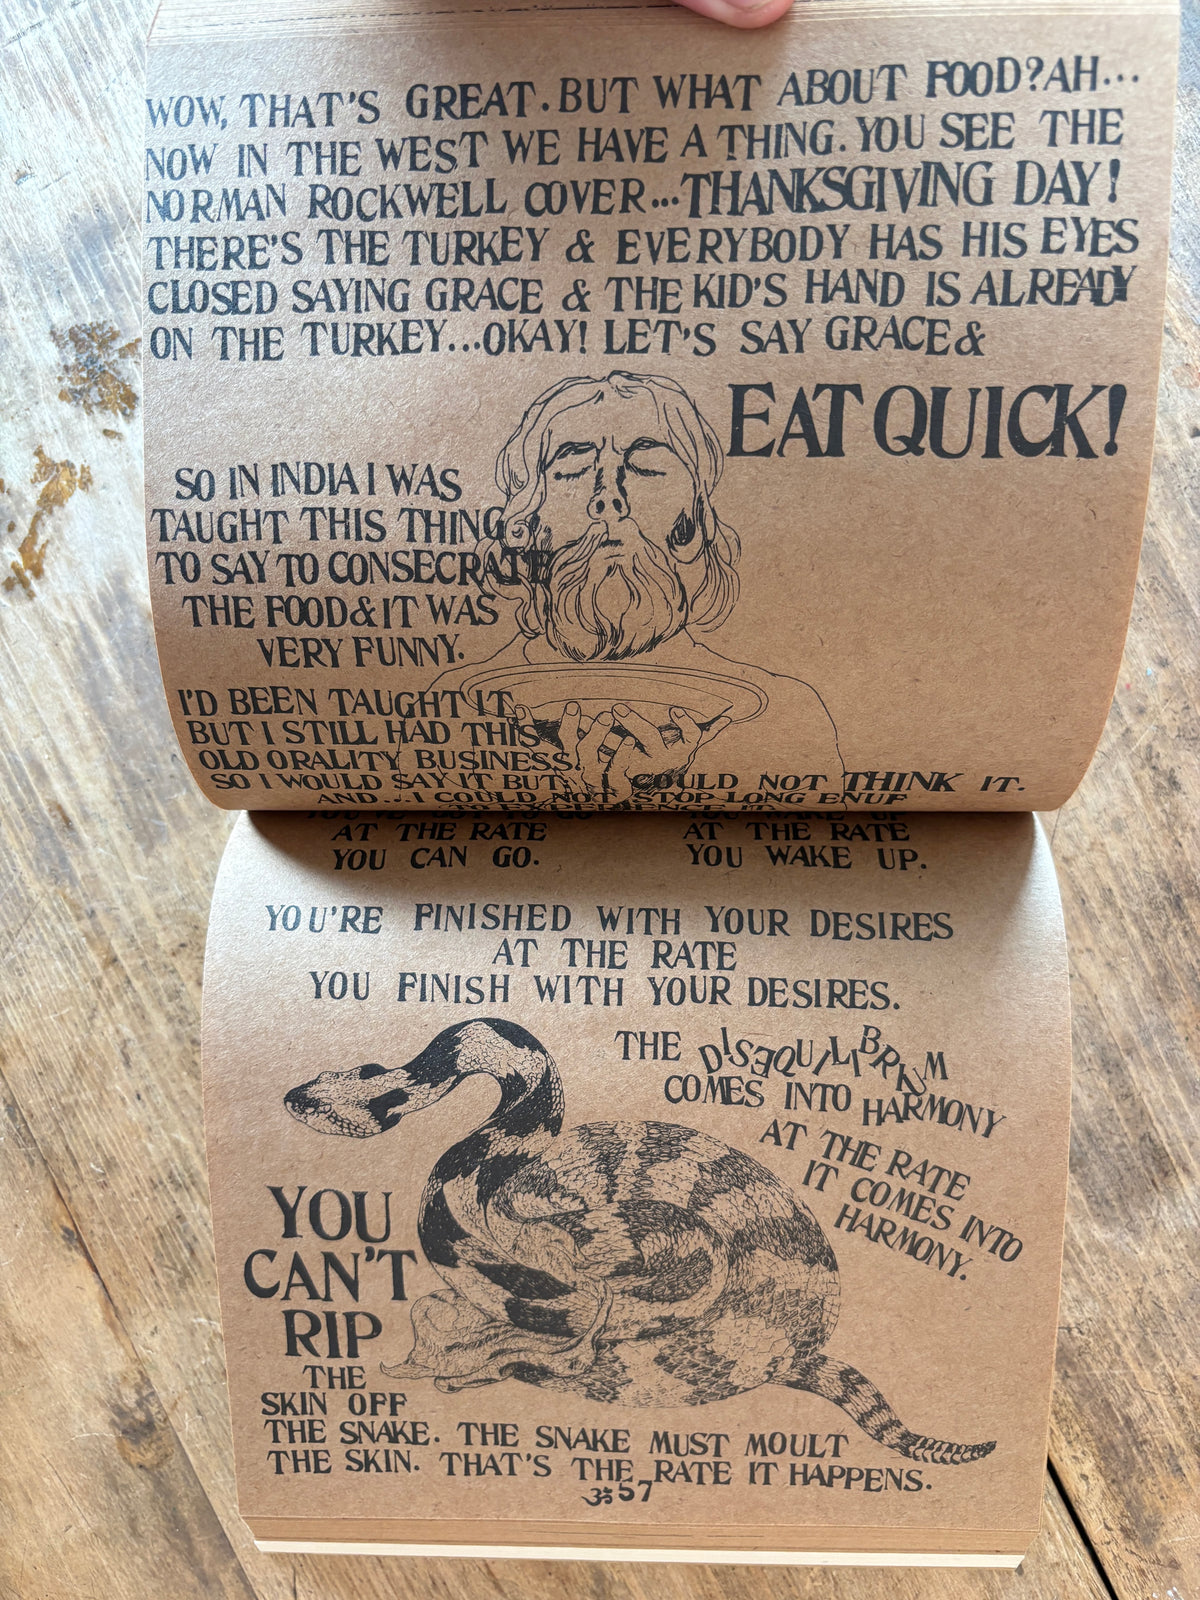 WOW, THAT'S GREAT. BUT WHAT ABOUT FOOD? AH...
NOW IN THE WEST WE HAVE A THING. YOU SEE THE
NORMAN ROCKWELL COVER...THANKSGIVING DAY!
THERE'S THE TURKEY & EVERYBODY HAS HIS EYES
CLOSED SAYING GRACE & THE KID'S HAND IS ALREADY
ON THE TURKEY...OKAY! LET'S SAY GRACE &
EAT QUICK!
SO IN INDIA I WAS
TAUGHT THIS THING
TO SAY TO CONSECRATE
THE FOOD & IT WAS
VERY FUNNY.
I'D BEEN TAUGHT IT,
BUT I STILL HAD THIS
OLD ORALITY BUSINESS.
SO I WOULD SAY IT BUT.. I COULD NOT THINK IT.
AND...I COULD NOT STOP LONG ENUF
TO EXPERIENCE IT
YOU'VE GOT TO GO YOU WAKE UP
AT THE RATE AT THE RATE
YOU CAN GO. YOU WAKE UP.
YOU'RE FINISHED WITH YOUR DESIRES
AT THE RATE
YOU FINISH WITH YOUR DESIRES.
THE DISEQUILIBRIUM
COMES INTO HARMONY
AT THE RATE
IT COMES INTO
HARMONY.
YOU
CAN'T
RIP
THE
SKIN OFF
THE SNAKE. THE SNAKE MUST MOULT
THE SKIN. THAT'S THE RATE IT HAPPENS.
ॐ 57